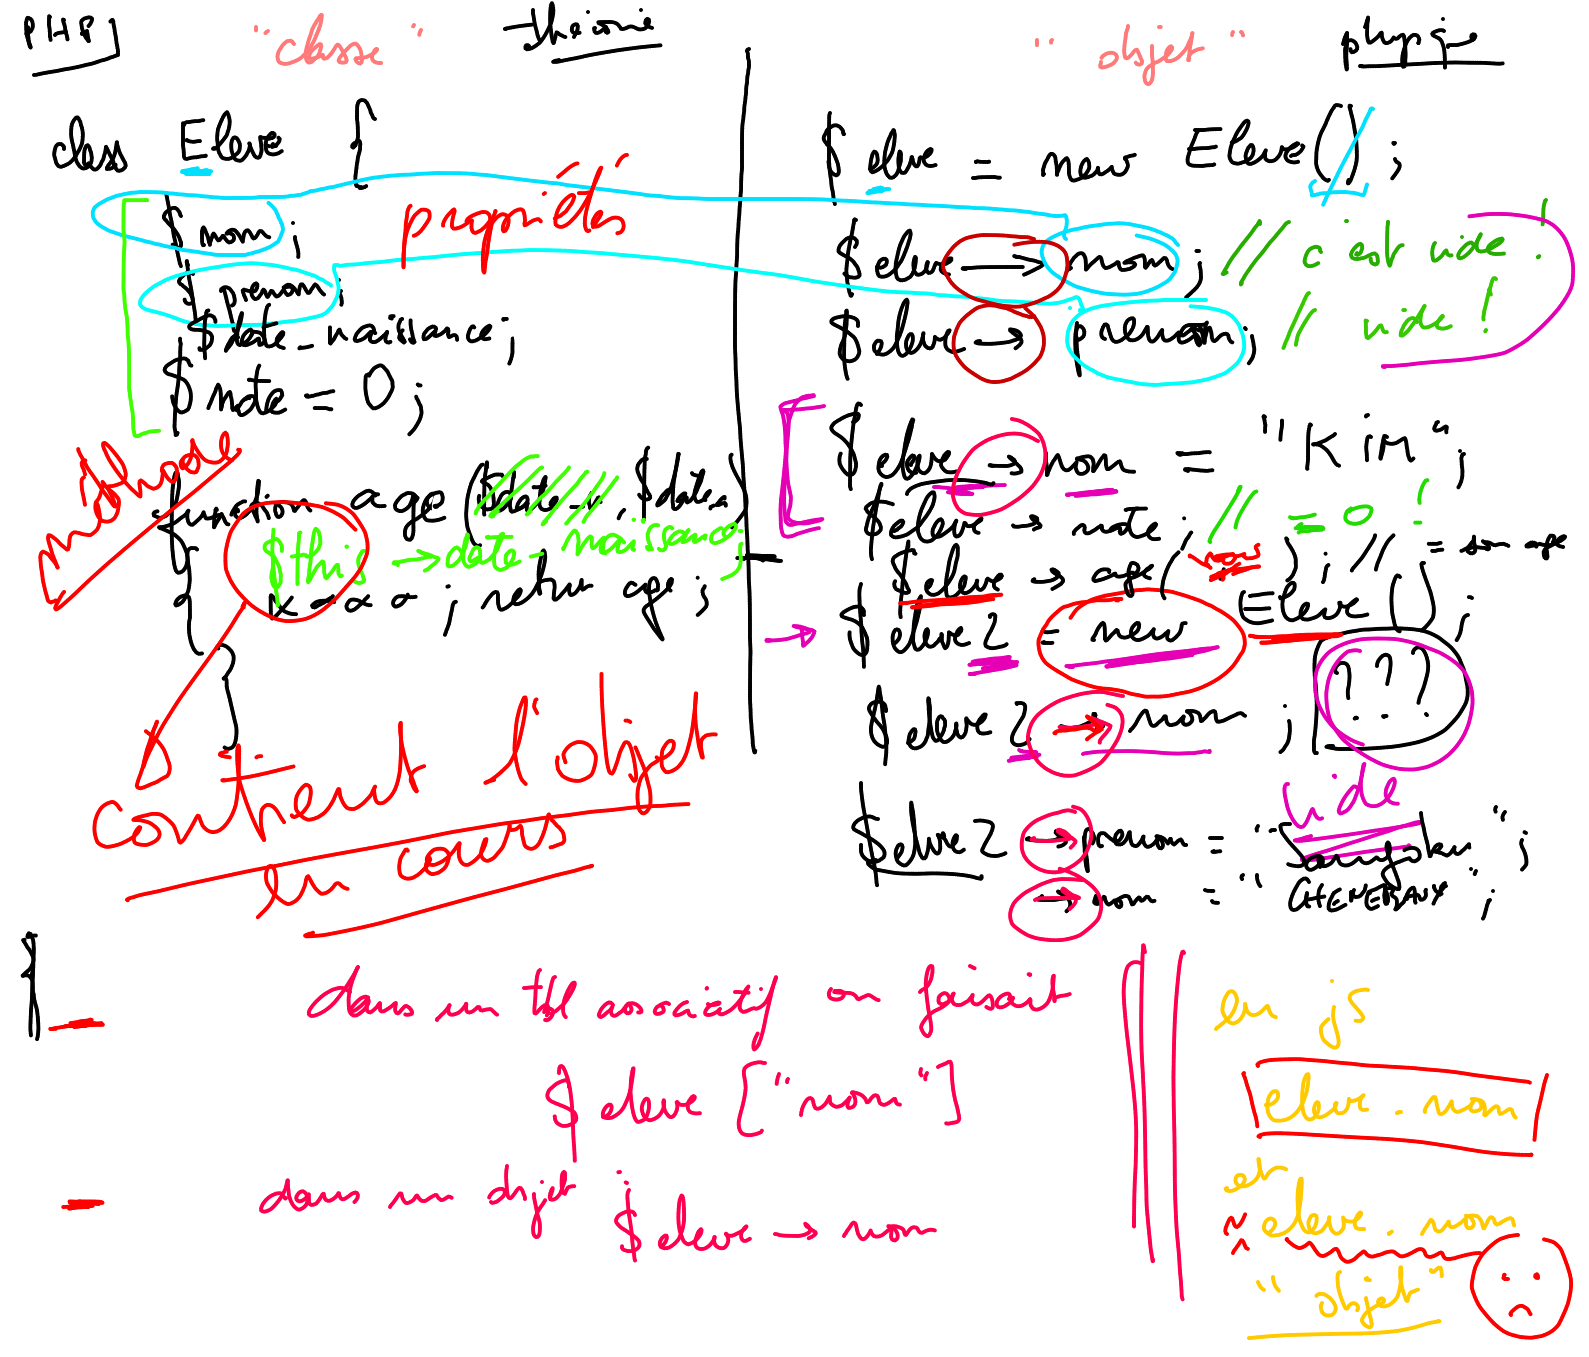 PHP
"classe"
théorie
class Eleve {
propriétés
$ nom ;
$ prenom ;
$ date_naissance ;
$ note = 0 ;
méthode
function age ($date_n, $date_a)
{
$this → date_naissance ;
; return age ;
}
}
contient l'objet
en cours
"objet"
$ eleve = new Eleve() ;
$ eleve → nom ; // c'est vide !
$ eleve → prenom ; // vide !
$ eleve → nom = "KiM" ;
$ eleve → note ; // = 0 !
$ eleve → age ( ) ; // = son age
$ eleve 2 = new Eleve () ;
$ eleve 2 → nom ; ???
vide
$ elve 2 → prenom = " " ;
→ nom = " " ;
dans un tbl associatif on faisait
$ eleve ["nom"]
dans un objet :
$ eleve → nom
en js
eleve . nom
et
eleve . nom
"objet"